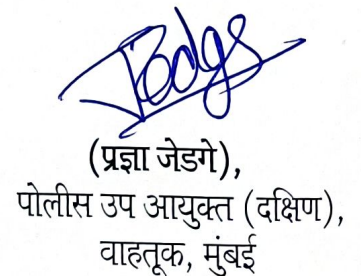 (प्रज्ञा जेडगे),
पोलीस उप आयुक्त (दक्षिण),
वाहतूक, मुंबई